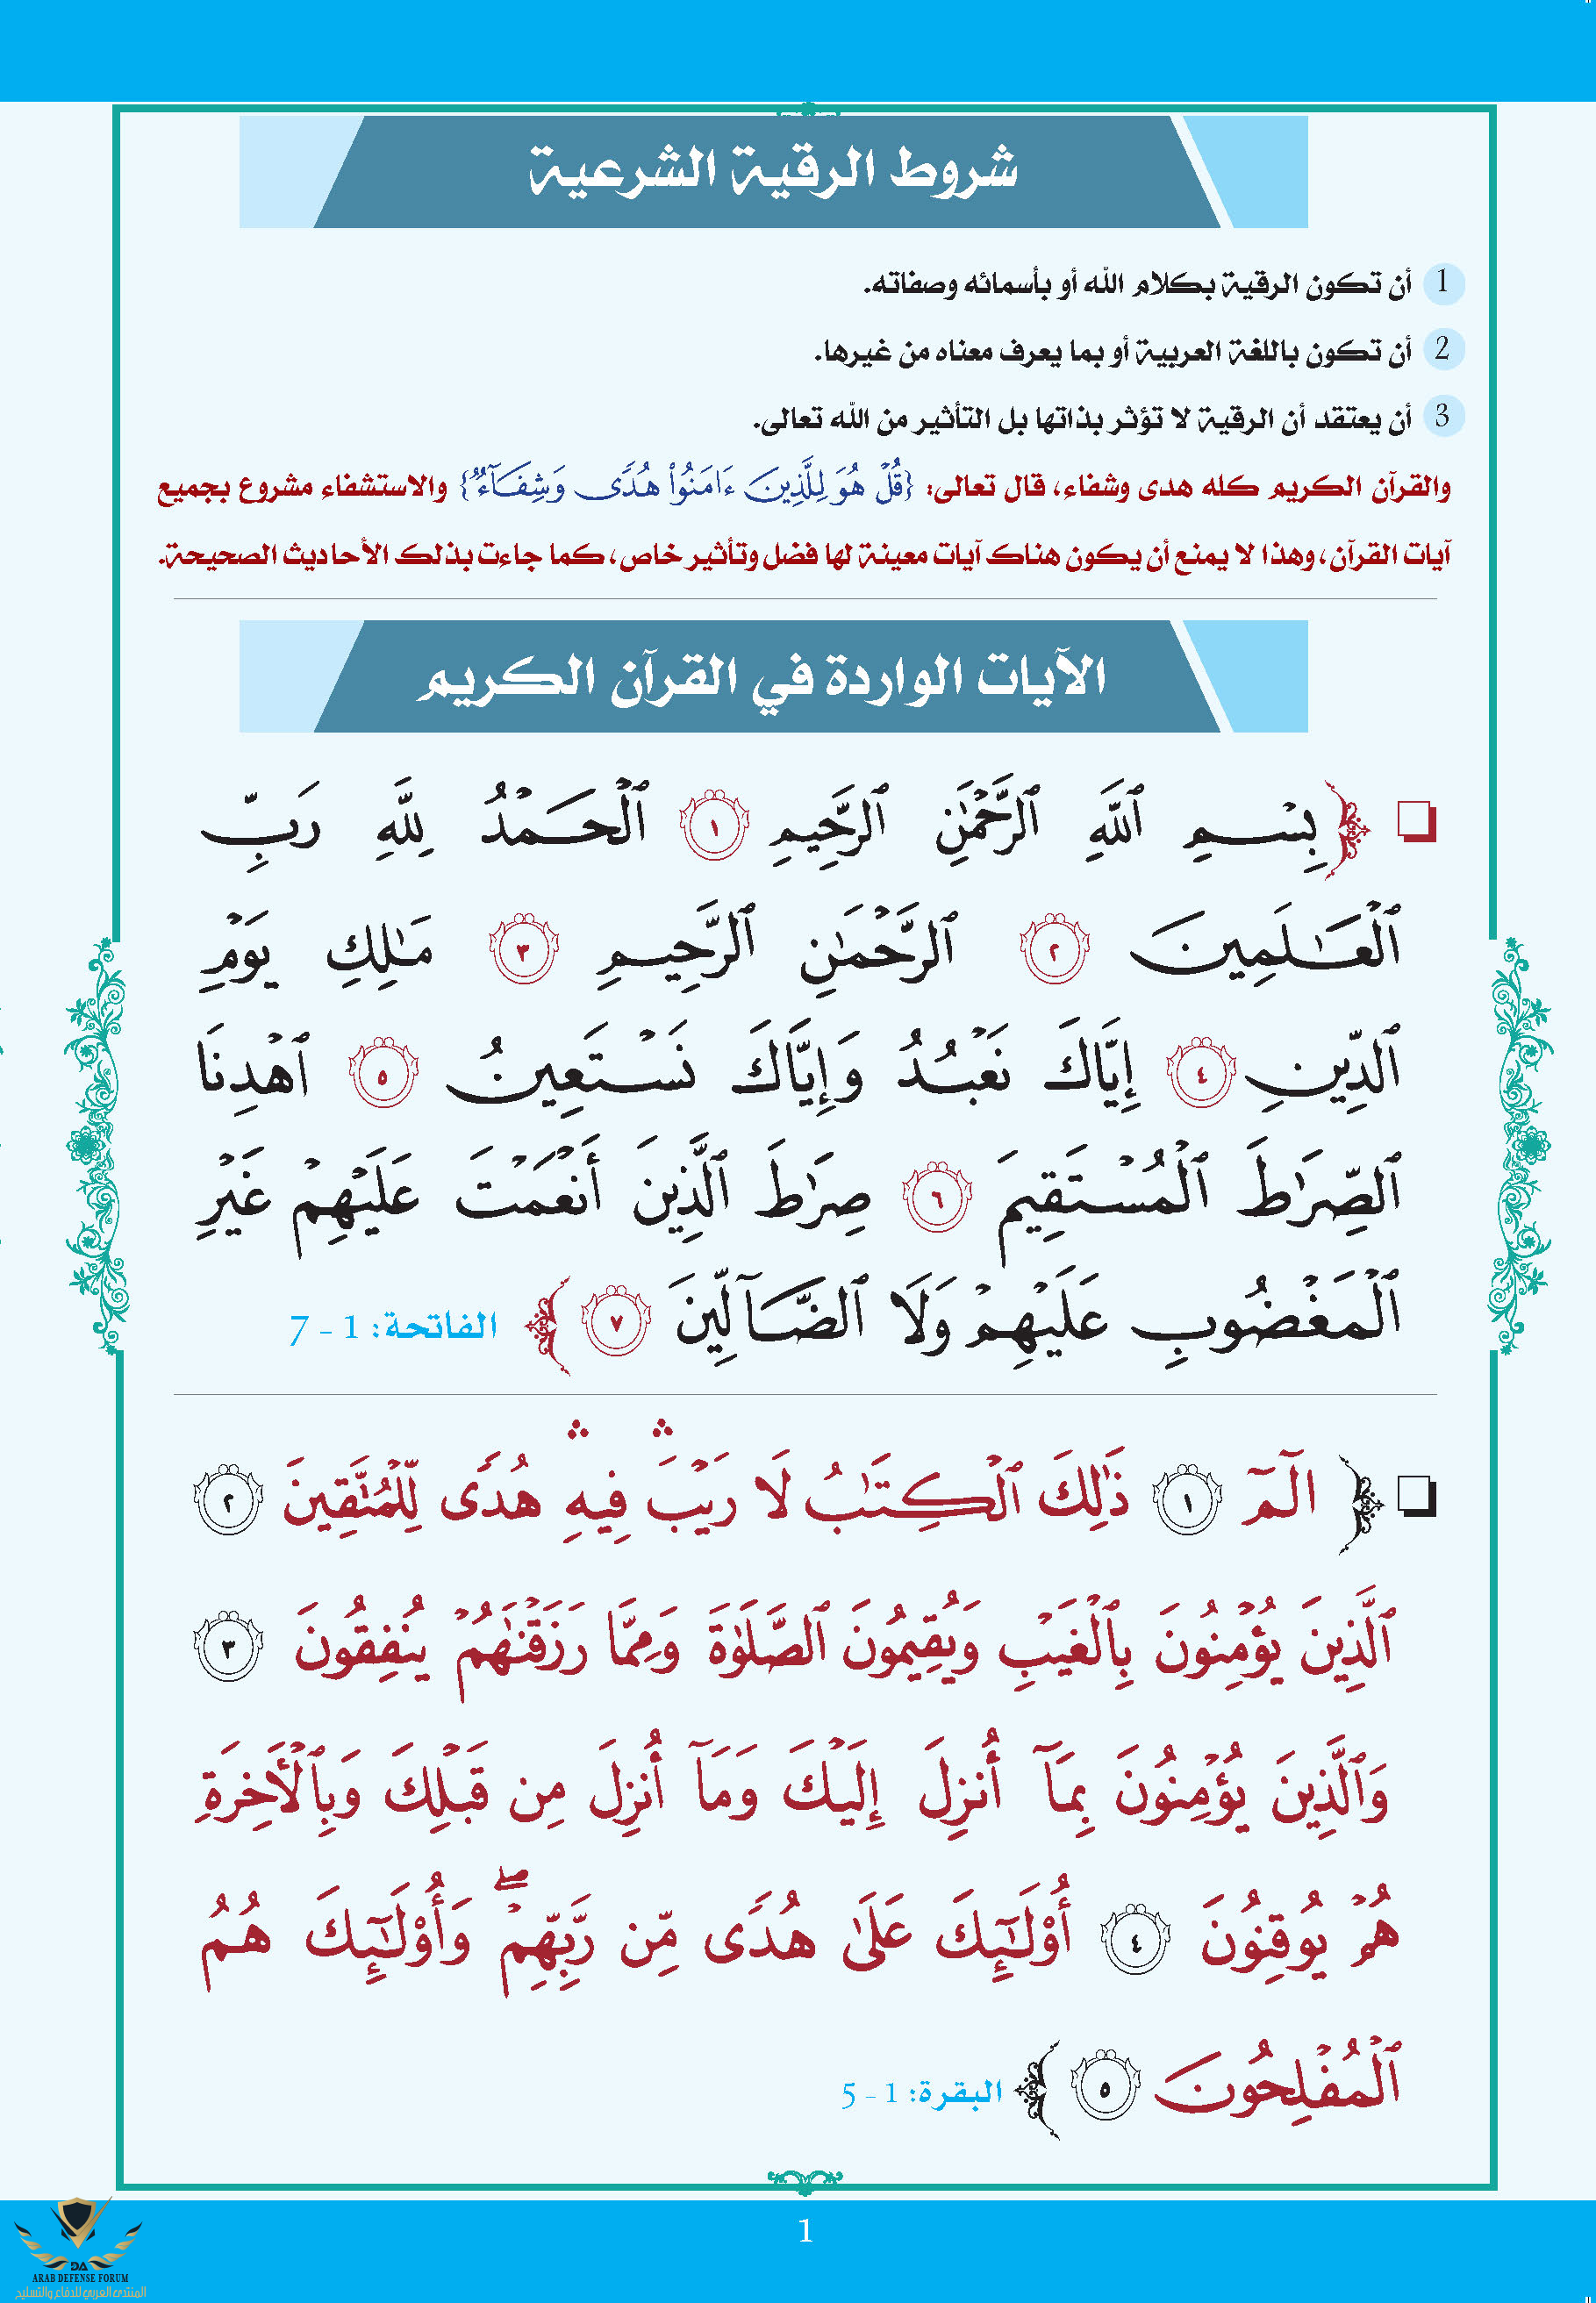 شروط الرقية الشرعية
1 أن تكون الرقية بكلام الله أو بأسمائه وصفاته.
2 أن تكون باللغة العربية أو بما يعرف معناه من غيرها.
3 أن يعتقد أن الرقية لا تؤثر بذاتها بل التأثير من الله تعالى.
والقرآن الكريم كله هدى وشفاء، قال تعالى: {قُلۡ هُوَ لِلَّذِينَ ءَامَنُواْ هُدٗى وَشِفَآءٞ} والاستشفاء مشروع بجميع
آيات القرآن، وهذا لا يمنع أن يكون هناك آيات معينة لها فضل وتأثير خاص، كما جاءت بذلك الأحاديث الصحيحة.
الآيات الواردة في القرآن الكريم
﴿بِسۡمِ ٱللَّهِ ٱلرَّحۡمَٰنِ ٱلرَّحِيمِ ١ ٱلۡحَمۡدُ لِلَّهِ رَبِّ
ٱلۡعَٰلَمِينَ ٢ ٱلرَّحۡمَٰنِ ٱلرَّحِيمِ ٣ مَٰلِكِ يَوۡمِ
ٱلدِّينِ ٤ إِيَّاكَ نَعۡبُدُ وَإِيَّاكَ نَسۡتَعِينُ ٥ ٱهۡدِنَا
ٱلصِّرَٰطَ ٱلۡمُسۡتَقِيمَ ٦ صِرَٰطَ ٱلَّذِينَ أَنۡعَمۡتَ عَلَيۡهِمۡ غَيۡرِ
ٱلۡمَغۡضُوبِ عَلَيۡهِمۡ وَلَا ٱلضَّآلِّينَ ٧﴾ الفاتحة: 1 - 7
﴿الٓمٓ ١ ذَٰلِكَ ٱلۡكِتَٰبُ لَا رَيۡبَۛ فِيهِۛ هُدٗى لِّلۡمُتَّقِينَ ٢
ٱلَّذِينَ يُؤۡمِنُونَ بِٱلۡغَيۡبِ وَيُقِيمُونَ ٱلصَّلَوٰةَ وَمِمَّا رَزَقۡنَٰهُمۡ يُنفِقُونَ ٣
وَٱلَّذِينَ يُؤۡمِنُونَ بِمَآ أُنزِلَ إِلَيۡكَ وَمَآ أُنزِلَ مِن قَبۡلِكَ وَبِٱلۡأٓخِرَةِ
هُمۡ يُوقِنُونَ ٤ أُوْلَٰٓئِكَ عَلَىٰ هُدٗى مِّن رَّبِّهِمۡۖ وَأُوْلَٰٓئِكَ هُمُ
ٱلۡمُفۡلِحُونَ ٥﴾ البقرة: 1 - 5
1
DA
ARAB DEFENSE FORUM
المنتدى العربي للدفاع والتسليح